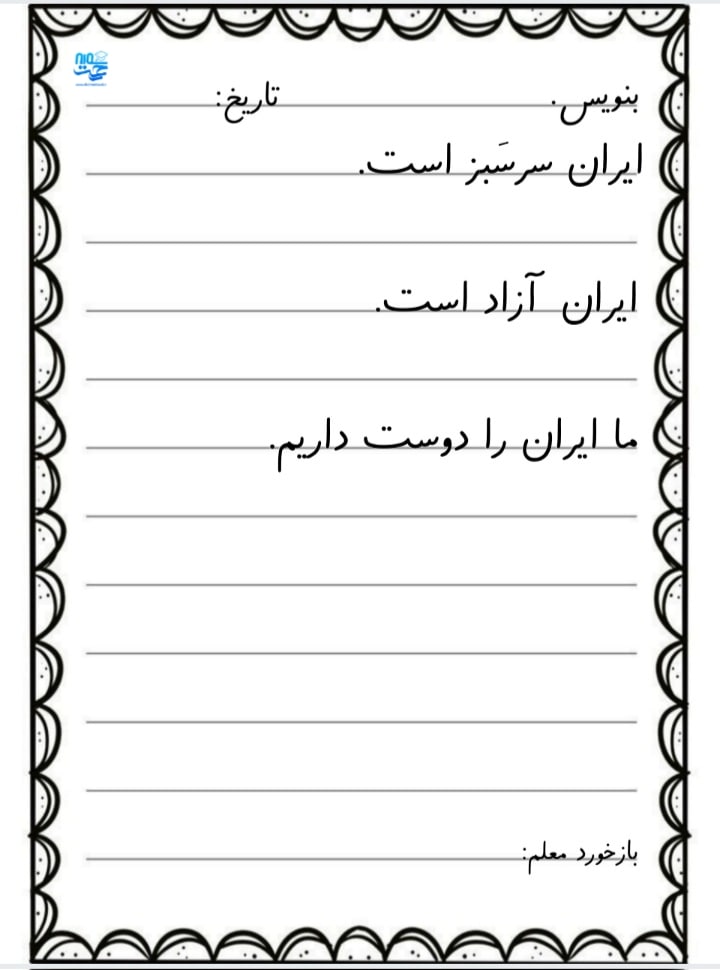 بنویس. تاریخ:
ایران سرسَبز است.
ایران آزاد است.
ما ایران را دوست داریم.
بازخورد معلم: